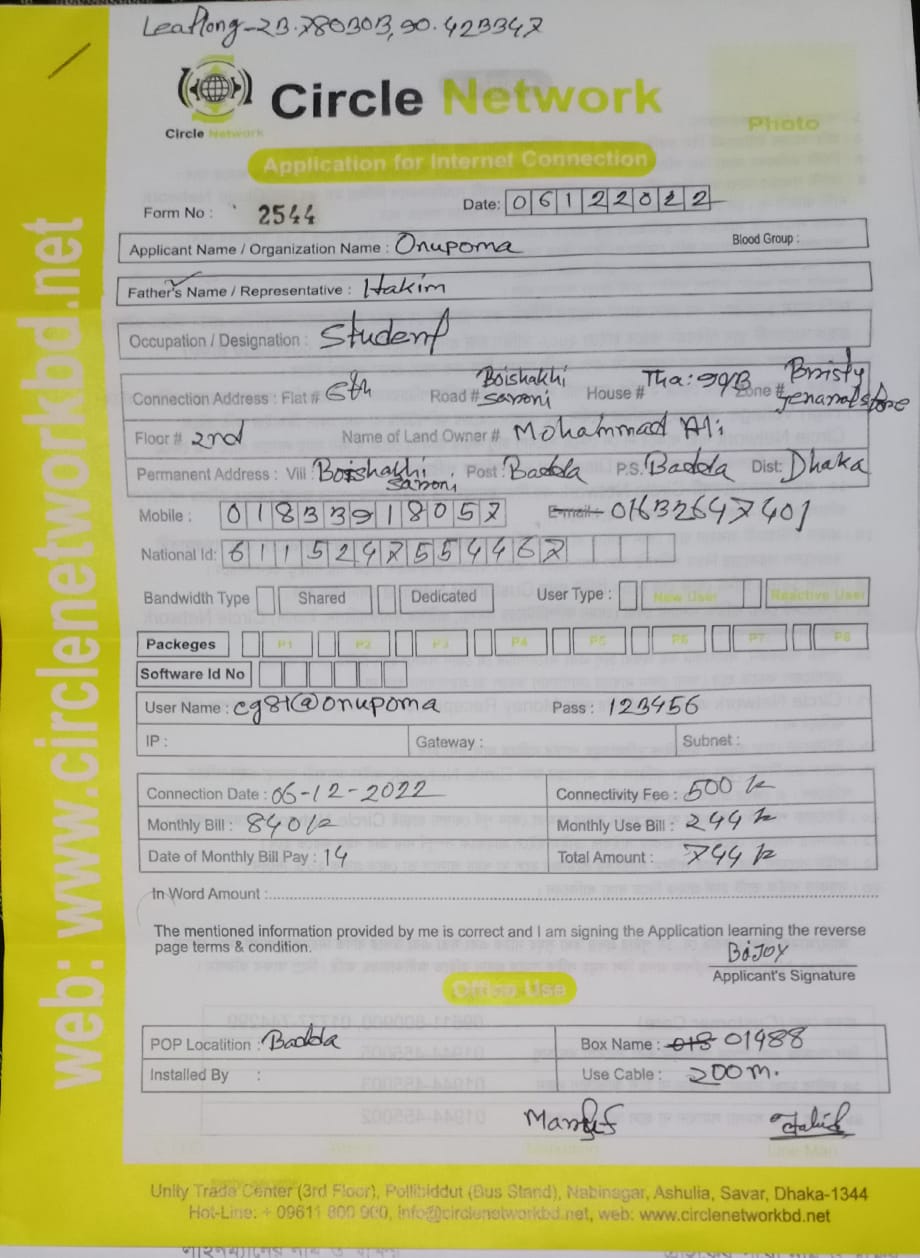 Leaflong-23.780303,90.423347
Circle Network
Circle Network
Photo
Application for Internet Connection
Form No : 2544 Date: 06122022
Applicant Name / Organization Name : Onupoma Blood Group :
Father's Name / Representative : Hakim
Occupation / Designation : Student
Connection Address : Flat # 6th Road # Boishakhi Saroni House # Tha: 99/B Zone # Bristy Jenaral Store
Floor # 2nd Name of Land Owner # Mohammad Ali
Permanent Address : Vill : Boishakhi Saroni Post : Badda P.S. Badda Dist: Dhaka
Mobile : 01833918057 E-mail 01632647401
National Id: 6115247554467
Bandwidth Type Shared Dedicated User Type : New User Reactive User
Packeges P1 P2 P3 P4 P5 P6 P7 P8
Software Id No
User Name : cg81@onupoma Pass : 123456
IP : Gateway : Subnet :
Connection Date : 06-12-2022 Connectivity Fee : 500 tk
Monthly Bill : 840 tk Monthly Use Bill : 244 tk
Date of Monthly Bill Pay : 14 Total Amount : 744 tk
In Word Amount :
The mentioned information provided by me is correct and I am signing the Application learning the reverse
page terms & condition.
BiJOY
Applicant's Signature
Official Use
POP Locatition : Badda Box Name : 018 01988
Installed By : Use Cable : 200m.
Unity Trade Center (3rd Floor), Pollibiddut (Bus Stand), Nabinagar, Ashulia, Savar, Dhaka-1344
Hot-Line: + 09611 800 900, info@circlenetworkbd.net, web: www.circlenetworkbd.net
web: www.circlenetworkbd.net